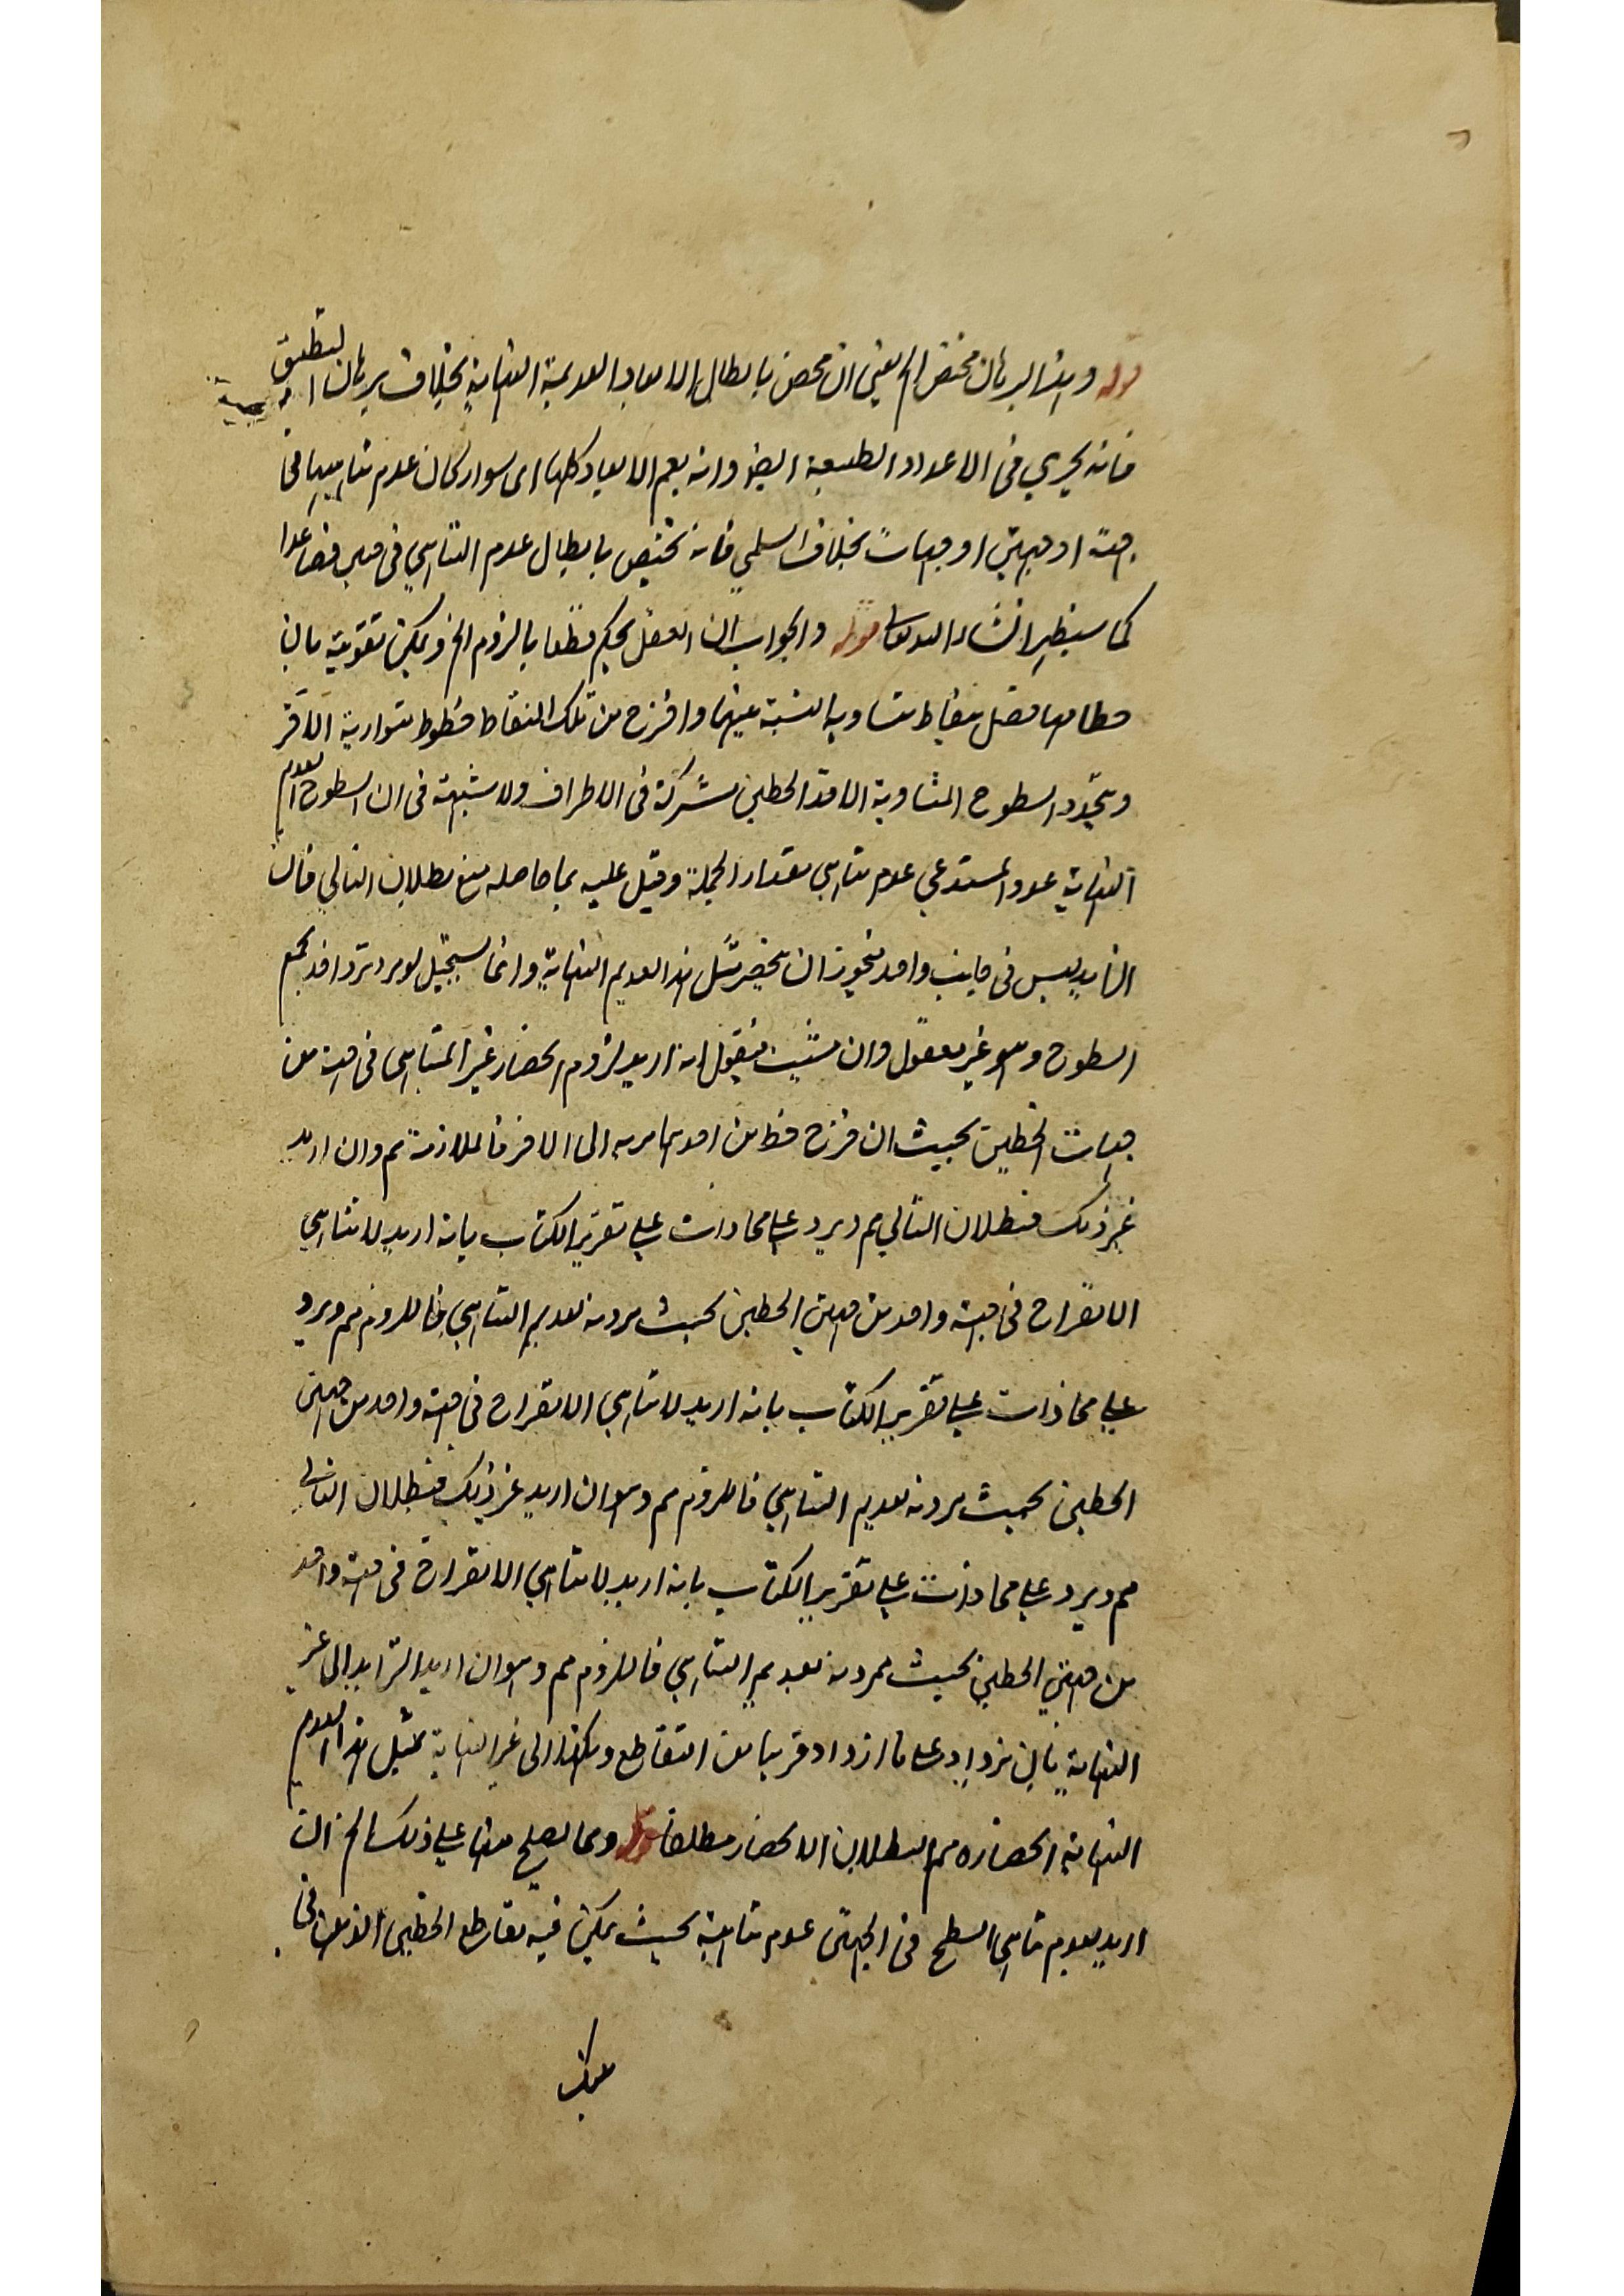 قوله وهذا البرهان مختص الخ يعنى ان مختص بابطال الابعاد العديمة النهاية بخلاف برهان التطبيق
فانه يجري فى الاعداد الطبيعة ايضا وانه يعم الابعاد كلها اى سواء كان عدم تناهيها فى
جهة او جهتين او جهات بخلاف السلمي فانه يختص بابطال عدم التناهي فى جهتين فصاعدا
كما سيظهر انشاء الله تعالى قوله والجواب ان العقل يحكم قطعا بالزوم الخ ويمكن تقويته بان
خطا منها فصل بنقاط متساوية النسبة بينها واخرج من تلك النقاط خطوط متوازية الآخر
ويتحدد السطوح المتساوية الاحد الخطين مشتركة فى الاطراف ولا شبهة فى ان السطوح العديم
النهاية عددا مستدعي عدم تناهي مقدار الجملة وقيل عليه بما حاصله منع بطلان التالي فان
التزايد ليس فى جانب واحد فيجوز ان ينحصر مثل هذا العديم النهاية وانما يستحيل لو يرد تزايد بجمع
السطوح وهو غير معقول وان شئت فيقول انه اريد لزوم انحصار غير المتناهى فى جهة من
جهات الخطين بحيث ان خرج خط من احدهما مر به الى الاخر فالملازمة مم وان اريد
غير ذلك فبطلان التالي مم ويرد على محاذات على تقرير الكتاب بانه اريد لا تناهي
الانفراج فى جهة واحد من جهتي الخطين بحيث مر دونه لعديم التناهي فاللزوم مم ويرد
على محاذات على تقرير الكتاب بانه اريد لا تناهي الانفراج فى جهة واحد من جهتى
الخطين بحيث مر دونه لعديم التناهي فاللزوم مم وهو ان اريد غير ذلك فبطلان التالى
مم ويرد على محاذات على تقرير الكتاب بانه اريد لا تناهي الانفراج فى جهة واحد
من جهتي الخطين بحيث مر دونه لعديم التناهي فاللزوم مم وهو ان اريد التزايد الى غير
النهاية بان يزداد على ما ازداد قريبا من التقاطع وهكذا الى غير النهاية بمثل هذا العديم
النهاية انحصاره مم البطلان الانحصار مطلقا قوله ومما يصلح منها على ذلك الخ ان
اريد بعدم تناهى السطح فى الجهتى عدم تناهية بحيث يمكن فيه تقاطع الخطين الذين فى